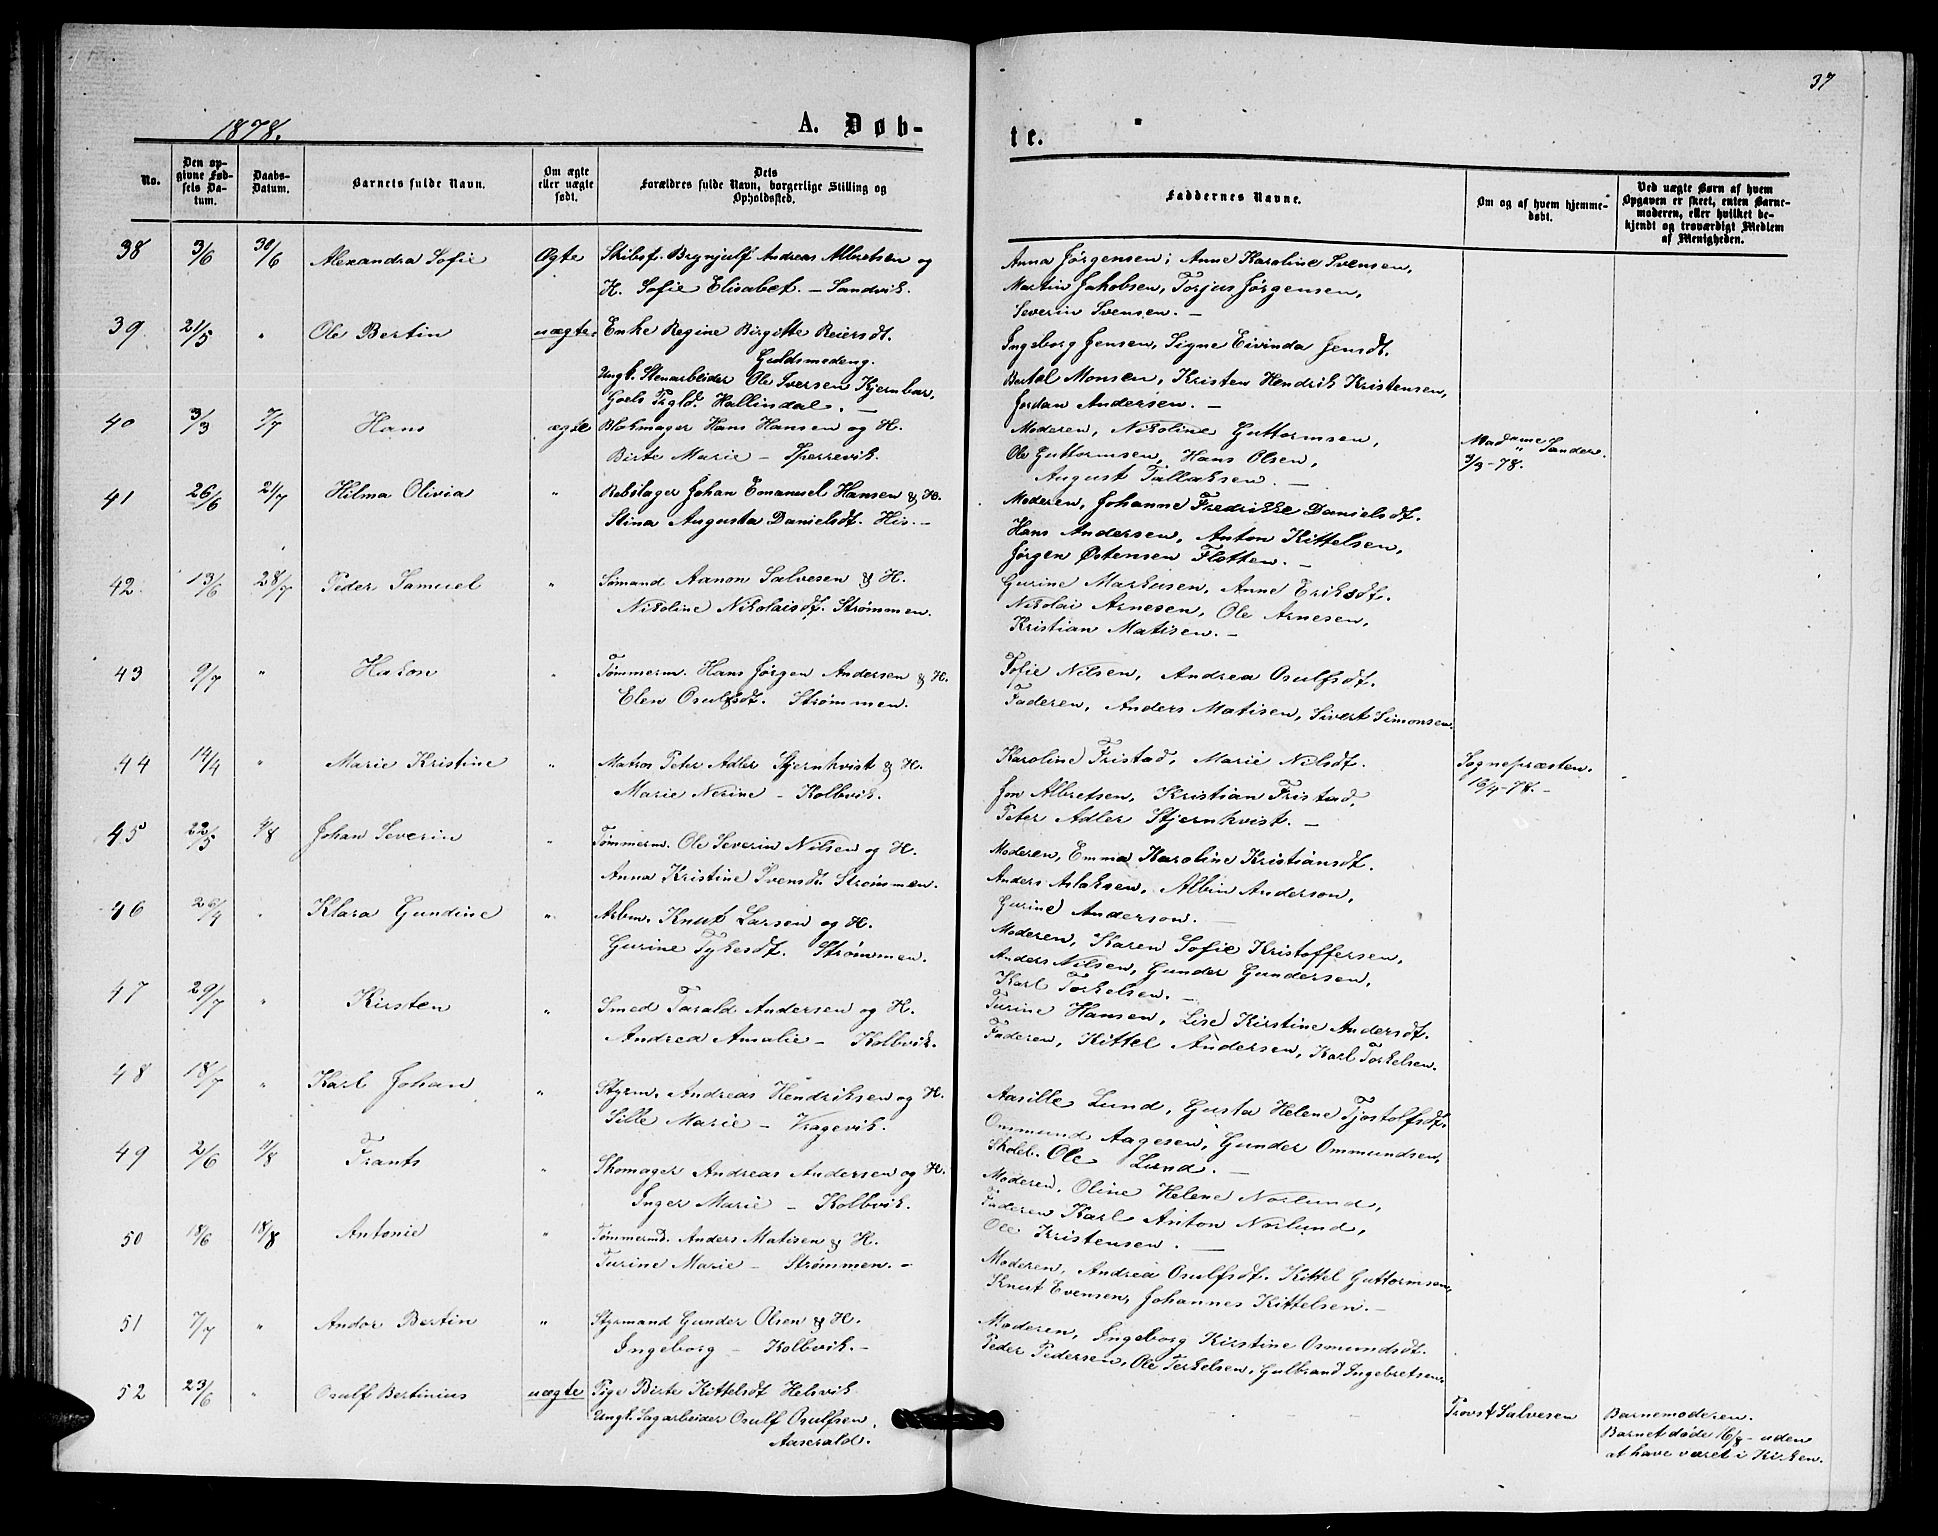 37
1878.
A. Døb-
te.
No.
Den op-
givne Fød-
sels Da-
tum.
Daabs-
Datum.
Barnets fulde Navn.
Om ægte
eller uægte
født.
Dets
Forældres fulde Navn, borgerlige Stilling og
Opholdssted.
Faddernes Navne.
Om og af hvem hjemme-
døbt.
Ved uægte Børn af hvem
Opgaven er skeet, enten Barne-
moderen, eller hvilket be-
kjendt og troværdigt Medlem
af Menigheden.
38 3/6 30/6 Alexandra Sofie Ægte Skibsf. Brynjulf Andreas Albretsen og
H. Sofie Elisabet. – Sandvik.
Anna Jørgensen; Anne Karoline Svensen,
Martin Jakobsen, Torjus Jørgensen,
Severin Svensen. –
39 21/5 " Ole Bertin uægte Enke Regine Birgitte Reiersdt.
Guldsmedeng.
Ungk. Stenarbeider Ole Iversen Kjernbar,
Goels Prgld. Hallindal. –
Ingeborg Jensen, Signe Eivinda Jensdt.
Bertel Monsen, Kristen Hendrik Kristensen,
Jordan Andersen. –
40 3/3 7/7 Hans ægte Blokmager Hans Hansen og H.
Birte Marie – Sperrevik.
Moderen, Nikoline Guttormsen,
Ole Guttormsen, Hans Olsen,
August Tallaksen. –
Madame Sander.
3/3-78.
41 26/6 21/7 Hilma Olivia " Rebslager Johan Emanuel Hansen & H.
Stina Augusta Danielsdt. His. –
Moderen, Johanne Fredrikke Danielsdt.
Hans Andersen, Anton Kittelsen,
Jørgen Østensen Flotten. –
42 13/6 28/7 Peder Samuel " Sømand Aanon Salvesen & H.
Nikoline Nikolaisdt. Strømmen.
Gurine Markusen, Anne Eriksdt.
Nikolai Arnesen, Ole Arnesen,
Kristian Matisen. –
43 9/7 " Hakon " Tømmerm. Hans Jørgen Andersen & H.
Elen Osulfsdt. Strømmen.
Sofie Nilsen, Andrea Osulfsdt.
Faderen, Anders Matisen, Sivert Simonsen.
44 14/4 " Marie Kristine " Matros Peter Adler Stjernkvist & H.
Marie Nerine – Kolbvik.
Karoline Fristad, Marie Nilsdt.
Jon Albretsen, Kristian Fristad,
Peter Adler Stjernkvist. –
Sognepræsten.
16/4-78.-
45 22/5 4/8 Johan Severin " Tømmerm. Ole Severin Nilsen og H.
Anna Kristine Svensdt. Strømmen.
Moderen, Emma Karoline Kristiansdt.
Anders Aslaksen, Albin Anderson,
Gurine Anderson. –
46 26/4 " Klara Gundine " Arbm. Knut Larsen og H.
Gurine Tykesdt. Strømmen.
Moderen, Karen Sofie Kristoffersen,
Anders Nilsen, Gunder Gundersen,
Karl Torkelsen. –
47 29/7 " Kirsten " Smed Tarald Andersen og H.
Andrea Amalie – Kolbvik.
Turine Hansen, Lise Kirstine Andersdt.
Faderen, Kittel Andersen, Karl Torkelsen.
48 18/7 " Karl Johan " Styrm. Andreas Hendriksen og H.
Sille Marie – Vragevik.
Aasille Lund, Gusta Helene Tjostolfsdt.
Ommund Aagesen, Gunder Ommundsen,
Skolel. Ole Lund. –
49 2/6 11/8 Frants " Skomager Andreas Andersen og H.
Inger Marie – Kolbvik.
Moderen, Oline Helene Norlund,
Faderen Karl Anton Norlund,
Ole Kristensen. –
50 18/6 18/8 Antonie " Tømmermd. Anders Matisen & H.
Turine Marie – Strømmen. –
Moderen, Andrea Osulfsdt. Kittel Guttormsen,
Knut Evensen, Johannes Kittelsen. –
51 7/7 " Andor Bertin " Styrmand Gunder Olsen & H.
Ingeborg – Kolbvik. –
Moderen, Ingeborg Kirstine Osmundsdt.
Peder Pedersen, Ole Terkelsen, Gulbrand Ingebretsen.
52 23/6 " Osulf Bertinius uægte Pige Birte Kittelsdt Helsvik
Ungk. Sagarbeider Osulf Osulfsen,
Aaserald.
Provst Salvesen
Barnemoderen.
Barnet døde 16/8 – uden
at have været i Kirken.